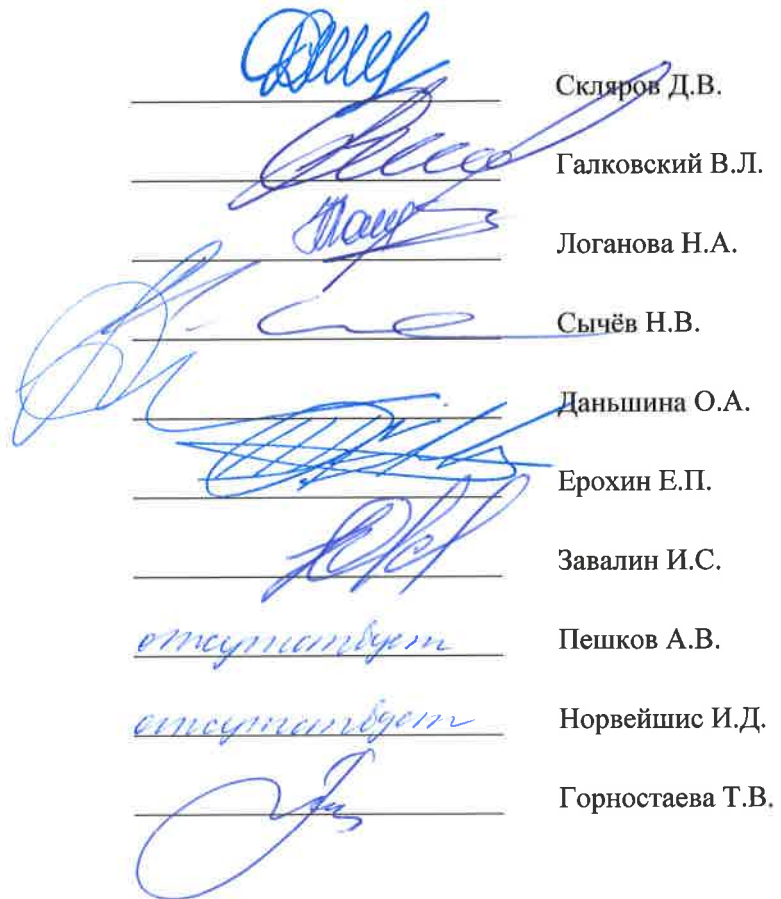 Скляров Д.В.
Галковский В.Л.
Логанова Н.А.
Сычёв Н.В.
Даньшина О.А.
Ерохин Е.П.
Завалин И.С.
отсутствует Пешков А.В.
отсутствует Норвейшис И.Д.
Горностаева Т.В.